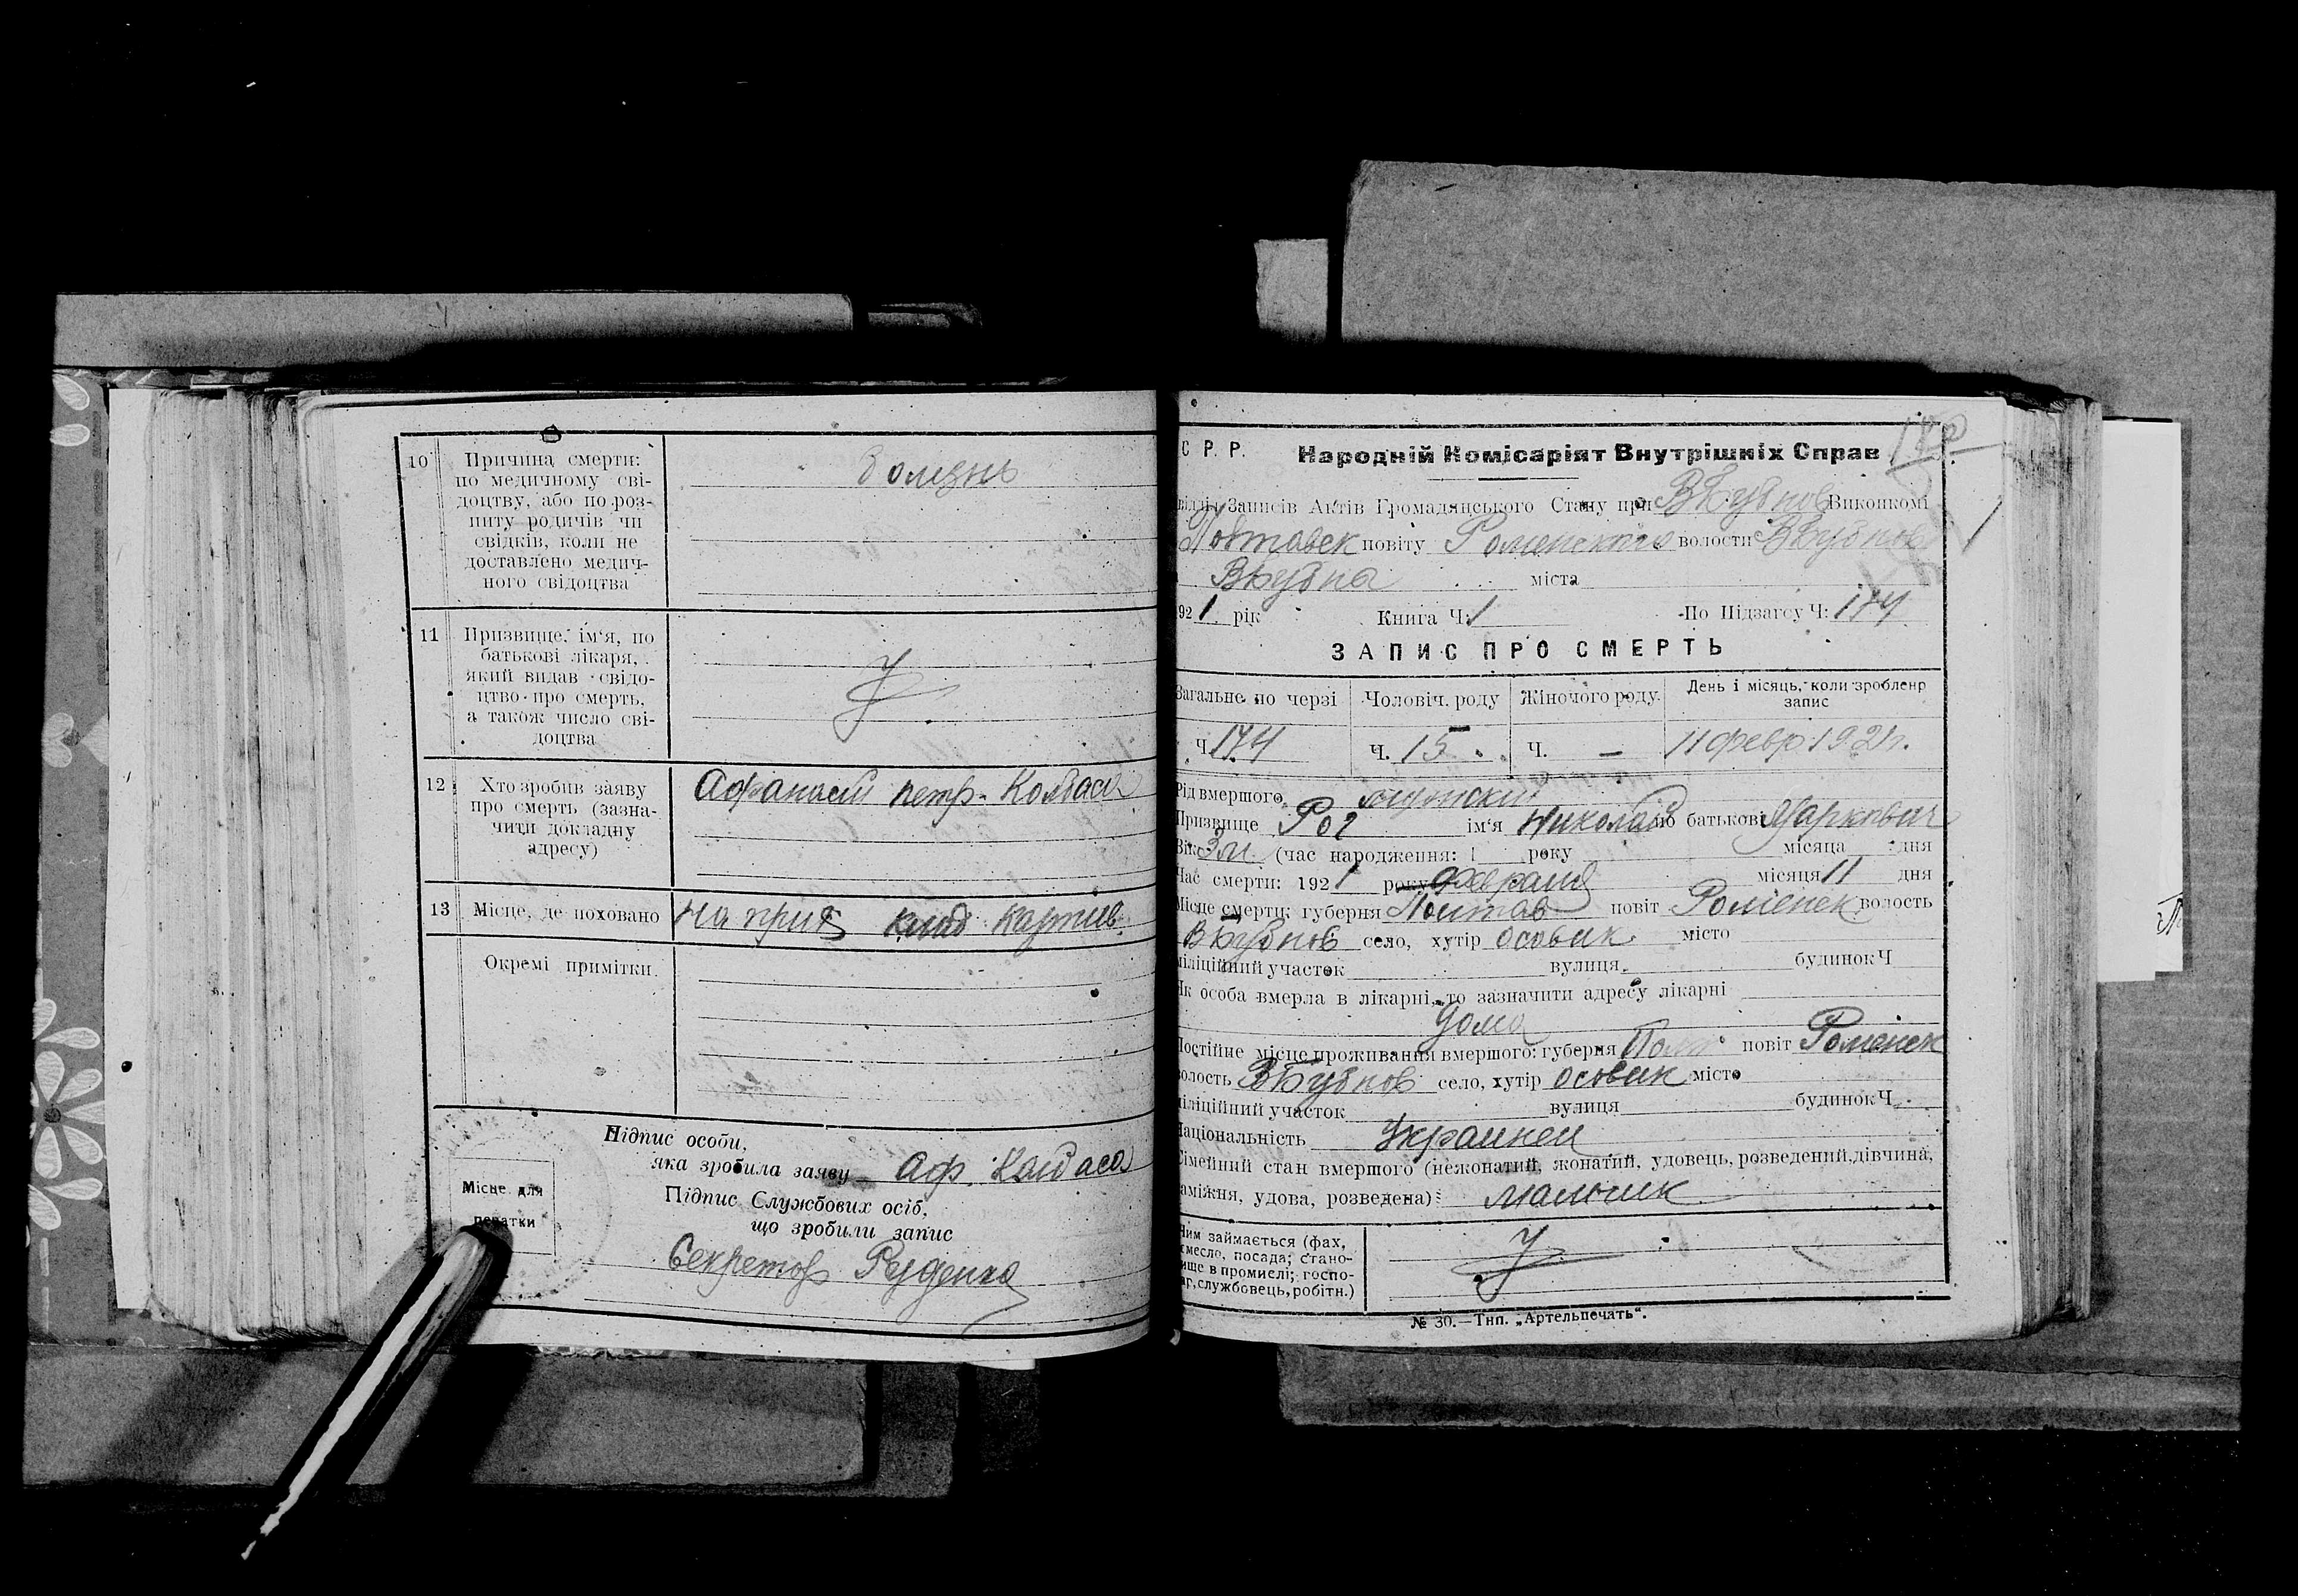 10
Причина смерти:
по медичному сві-
доцтву, або по роз-
питу родичів чи
свідків, коли не
доставлено медич-
ного свідоцтва
болезнь
11
Призвище, ім'я, по
батькові лікаря,
який видав свідо-
цтво про смерть,
а також число сві-
доцтва
12
Хто зробив заяву
про смерть (зазна-
чити докладну
адресу)
Афанасій петр.
13
Місце, де поховано
на прих клад
Окремі примітки.
Підпис особи,
яка зробила заяву Аф.
Підпис Службових осіб,
що зробили запис
Місце для
печатки
Секретар Руденко
С Р. Р. Народній Комісаріят Внутрішніх Справ
Записів Актів Громадянського Стану при ВБубнов Виконкомі
Повтавск повіту Роменского волости ВБубнов
ВБубны міста
921 рік Книга Ч: 1 По Підзагсу Ч: 174
ЗАПИС ПРО СМЕРТЬ
Загальне по черзі Чоловіч. роду Жіночого роду. День і місяць, коли зроблено
запис
Ч. 174 Ч. 15 Ч. — 11 февр 1921г.
Рід вмершого мужский
Призвище Рог ім'я Николай по батькові Маркович
Вік 3 м. (час народження: 1 року місяца дня
Час смерти: 1921 року Февраля місяця 11 дня
Місце смерти: губерня Полтав повіт Роменск волость
ВБубнов село, хутір Осовик місто
міліційний участок вулиця будинок Ч
Як особа вмерла в лікарні, то зазначити адресу лікарні
Дома
Постійне місце проживання вмершого: губерня Полт повіт Роменск
волость ВБубнов село, хутір Осовик місто
міліційний участок вулиця будинок Ч
Національність Украинец
Сімейний стан вмершого (нежонатий, жонатий, удовець, розведений, дівчина,
заміжня, удова, розведена): мальчик
Чим займається (фах,
ремесло, посада; стано-
вище в промислі; госпо-
дар, службовець, робітн.)
№ 30.—Тип. „Артельпечать".